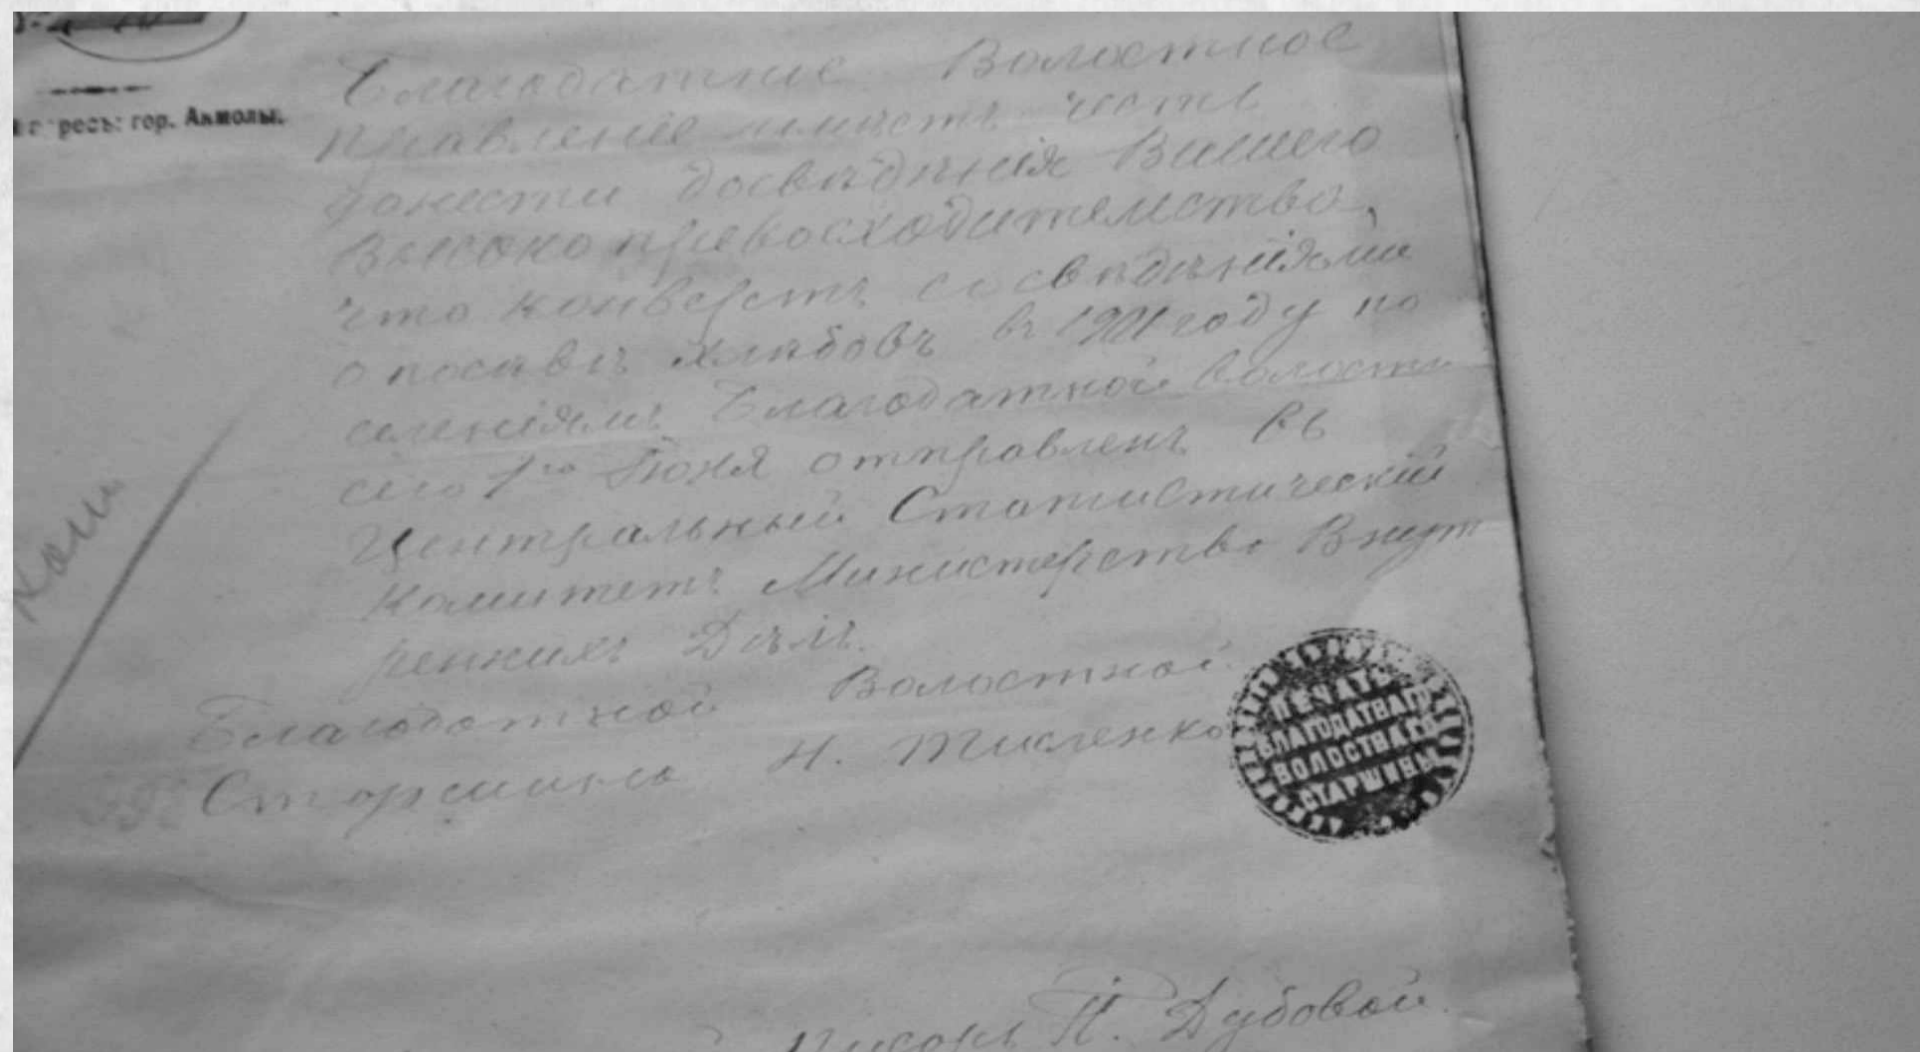 адресъ: гор. Акмолы.
Благодатное Волостное
Правленіе имѣетъ честь
донести до свѣдѣнія Вашего
Высокопревосходительства,
что конвертъ со свѣдѣніями
о посѣвѣ хлѣбовъ въ 1901 году по
селеніямъ Благодатной волости
сего 1го Іюня отправленъ въ
Центральный Статистическій
Комитетъ Министерства Внут
реннихъ Дѣлъ.
Благодатной Волостной
Старшина Н.
ПЕЧАТЬ
БЛАГОДАТНАГО
ВОЛОСТНАГО
СТАРШИНЫ
Писарь П. Дубовой